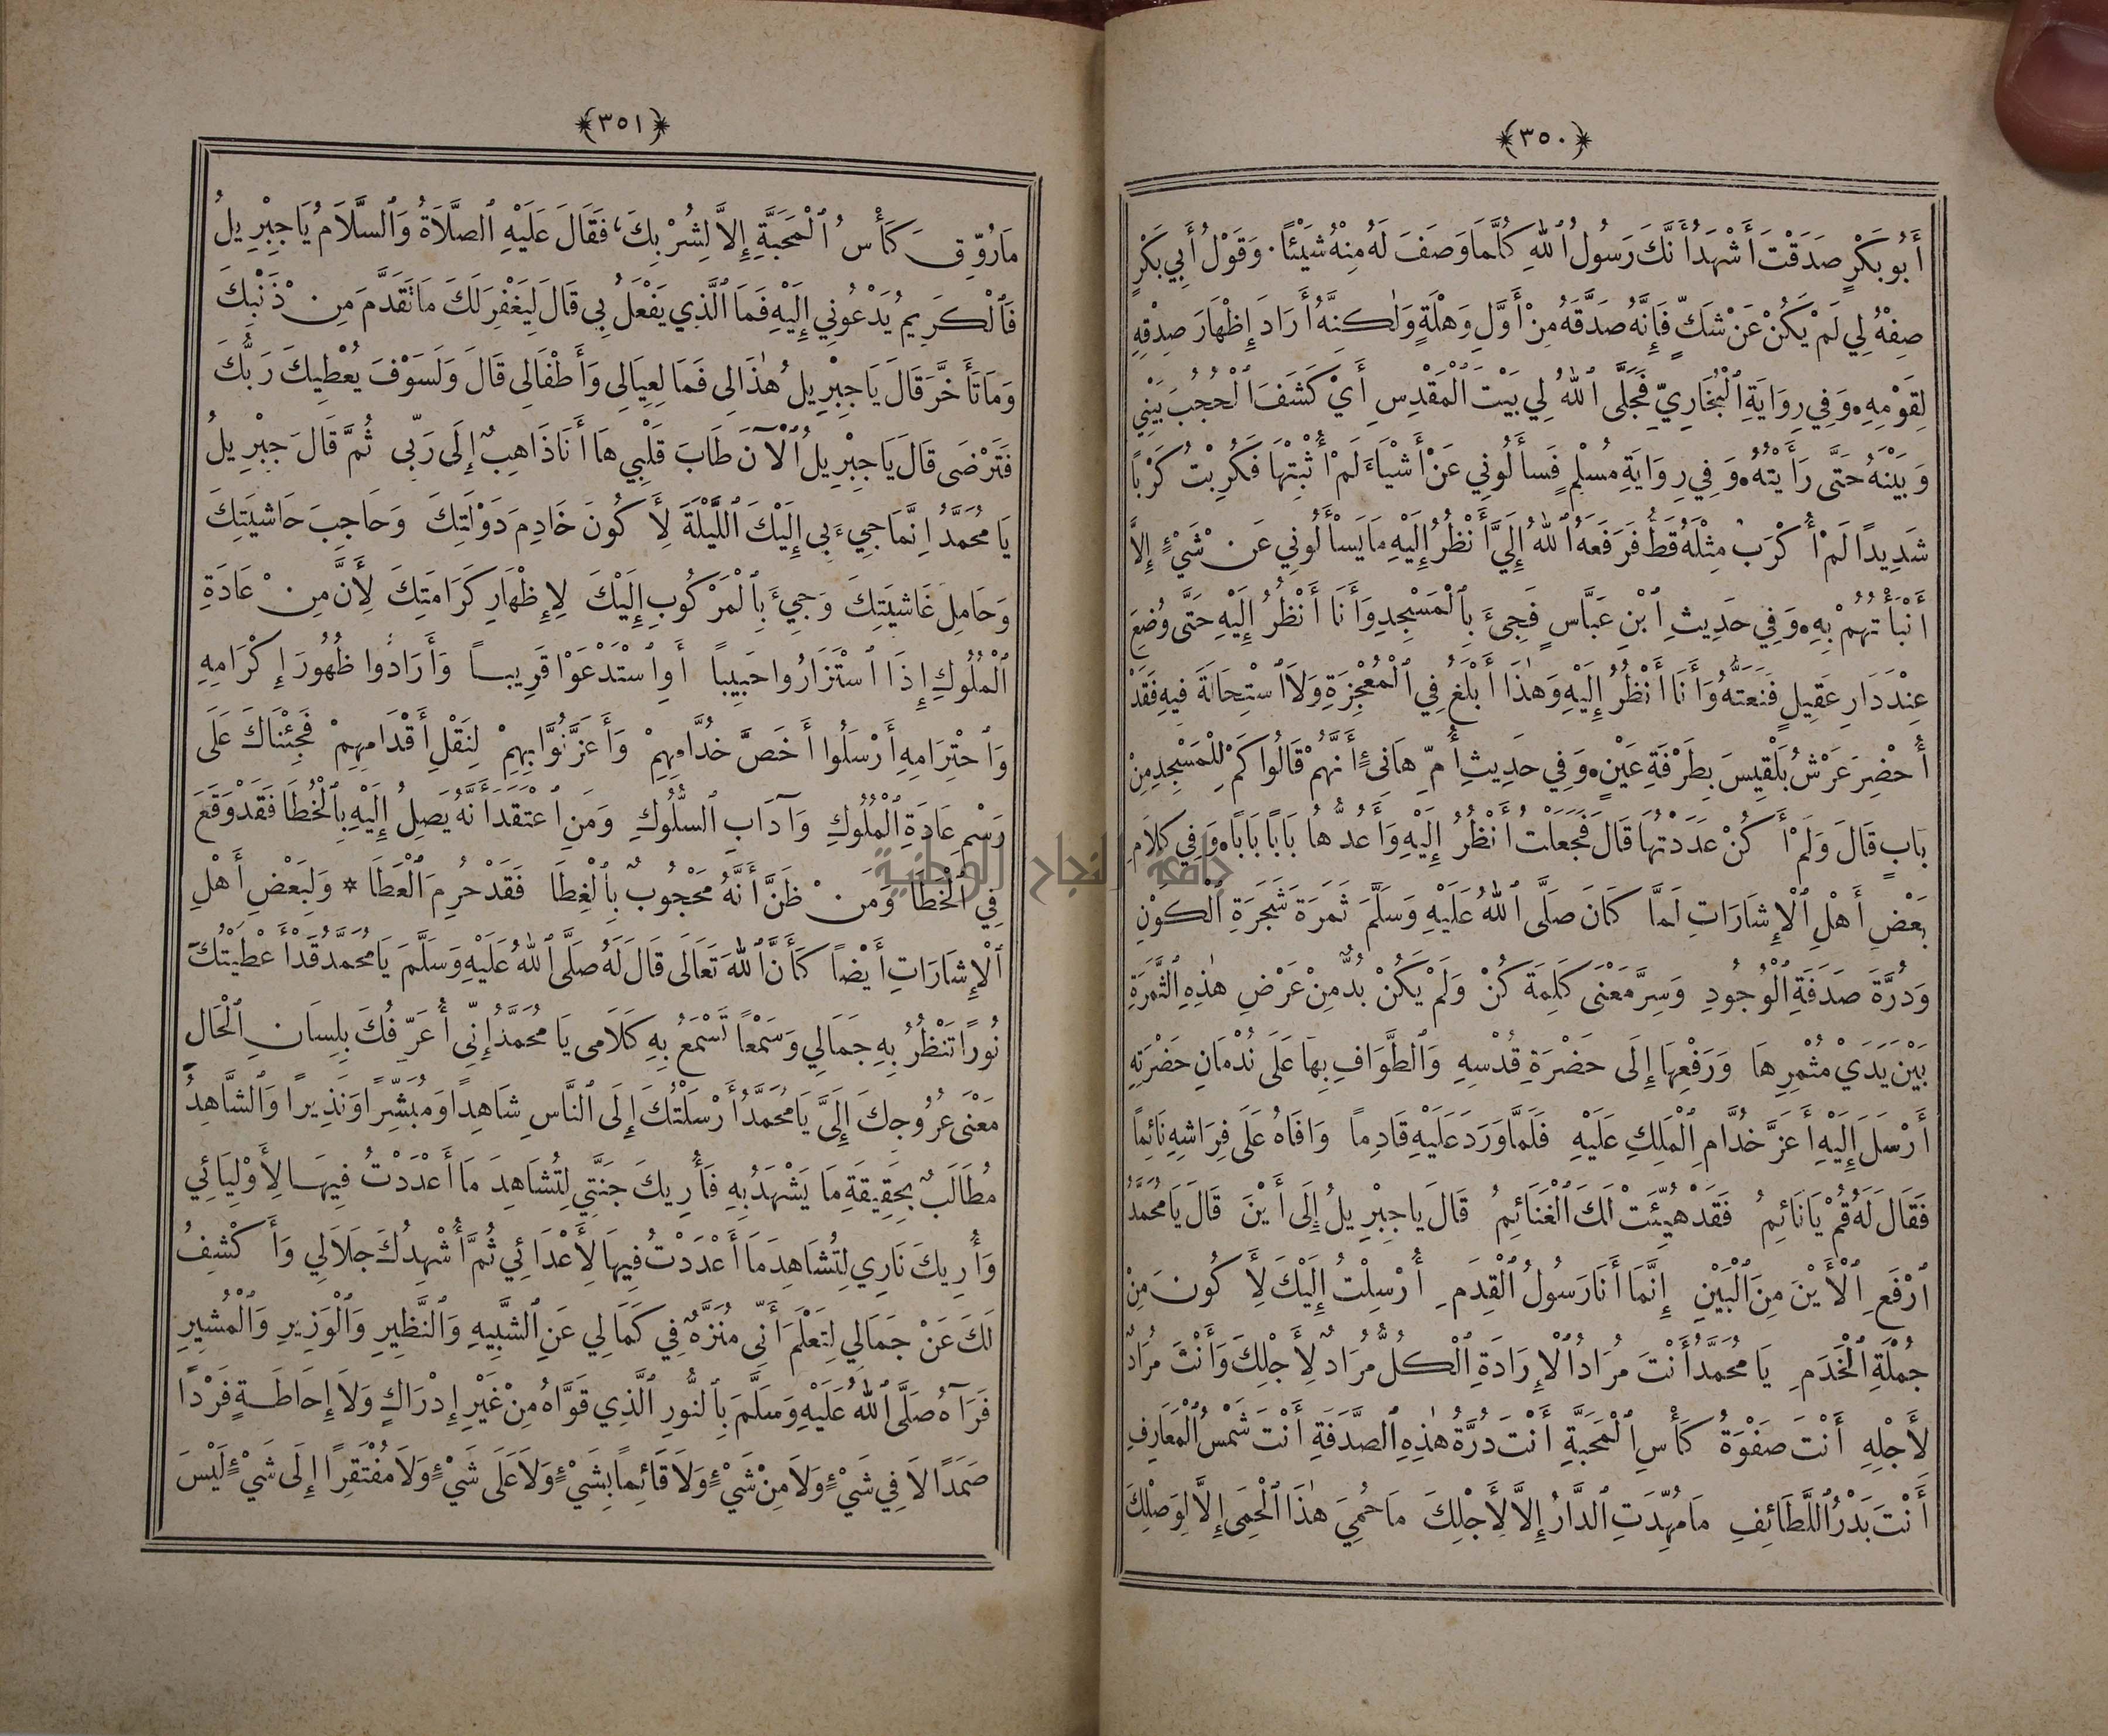 ﴿٣٥٠﴾
أَبُو بَكْرٍ صَدَقْتَ أَشْهَدُ أَنَّكَ رَسُولُ ٱللهِ كُلَّمَا وَصَفَ لَهُ مِنْهُ شَيْئًا. وَقَوْلُ أَبِي بَكْرٍ
صِفْهُ لِي لَمْ يَكُنْ عَنْ شَكٍّ فَإِنَّهُ صَدَّقَهُ مِنْ أَوَّلِ وَهْلَةٍ وَلٰكِنَّهُ أَرَادَ إِظْهَارَ صِدْقِهِ
لِقَوْمِهِ. وَفِي رِوَايَةِ ٱلْبُخَارِيِّ فَجَلَّى ٱللهُ لِي بَيْتَ ٱلْمَقْدِسِ أَيْ كَشَفَ ٱلْحُجُبَ بَيْنِي
وَبَيْنَهُ حَتَّى رَأَيْتُهُ. وَفِي رِوَايَةِ مُسْلِمٍ فَسَأَلُونِي عَنْ أَشْيَاءَ لَمْ أُثْبِتْهَا فَكُرِبْتُ كَرْبًا
شَدِيدًا لَمْ أُكْرَبْ مِثْلَهُ قَطُّ فَرَفَعَهُ ٱللهُ إِلَيَّ أَنْظُرُ إِلَيْهِ مَا يَسْأَلُونِي عَنْ شَيْءٍ إِلاَّ
أَنْبَأْتُهُمْ بِهِ. وَفِي حَدِيثِ ٱبْنِ عَبَّاسٍ فَجِيءَ بِٱلْمَسْجِدِ وَأَنَا أَنْظُرُ إِلَيْهِ حَتَّى وُضِعَ
عِنْدَ دَارِ عَقِيلٍ فَنَعَتُّهُ وَأَنَا أَنْظُرُ إِلَيْهِ وَهٰذَا أَبْلَغُ فِي ٱلْمُعْجِزَةِ وَلاَ ٱسْتِحَالَةَ فِيهِ فَقَدْ
أُحْضِرَ عَرْشُ بَلْقِيسَ بِطَرْفَةِ عَيْنٍ. وَفِي حَدِيثِ أُمِّ هَانِئٍ أَنَّهُمْ قَالُوا كَمْ لِلْمَسْجِدِ مِنْ
بَابٍ قَالَ وَلَمْ أَكُنْ عَدَدْتُهَا قَالَ فَجَعَلْتُ أَنْظُرُ إِلَيْهِ وَأَعُدُّهَا بَابًا بَابًا. وَفِي كَلاَمِ
بَعْضِ أَهْلِ ٱلْإِشَارَاتِ لَمَّا كَانَ صَلَّى ٱللهُ عَلَيْهِ وَسَلَّمَ ثَمَرَةَ شَجَرَةِ ٱلْكَوْنِ
وَدُرَّةَ صَدَفَةِ ٱلْوُجُودِ وَسِرَّ مَعْنَى كَلِمَةِ كُنْ وَلَمْ يَكُنْ بُدٌّ مِنْ عَرْضِ هٰذِهِ ٱلثَّمَرَةِ
بَيْنَ يَدَيْ مُثْمِرِهَا وَرَفْعِهَا إِلَى حَضْرَةِ قُدْسِهِ وَٱلطَّوَافِ بِهَا عَلَى نُدْمَانِ حَضْرَتِهِ
أَرْسَلَ إِلَيْهِ أَعَزَّ خُدَّامِ ٱلْمَلِكِ عَلَيْهِ فَلَمَّا وَرَدَ عَلَيْهِ قَادِمًا وَافَاهُ عَلَى فِرَاشِهِ نَائِمًا
فَقَالَ لَهُ قُمْ يَا نَائِمُ فَقَدْ هُيِّئَتْ لَكَ ٱلْغَنَائِمُ قَالَ يَا جِبْرِيلُ إِلَى أَيْنَ قَالَ يَا مُحَمَّدُ
ٱرْفَعِ ٱلْأَيْنَ مِنَ ٱلْبَيْنِ إِنَّمَا أَنَا رَسُولُ ٱلْقِدَمِ أُرْسِلْتُ إِلَيْكَ لِأَكُونَ مِنْ
جُمْلَةِ ٱلْخَدَمِ يَا مُحَمَّدُ أَنْتَ مُرَادُ ٱلْإِرَادَةِ ٱلْكُلُّ مُرَادٌ لِأَجْلِكَ وَأَنْتَ مُرَادٌ
لِأَجْلِهِ أَنْتَ صَفْوَةُ كَأْسِ ٱلْمَحَبَّةِ أَنْتَ دُرَّةُ هٰذِهِ ٱلصَّدَفَةِ أَنْتَ شَمْسُ ٱلْمَعَارِفِ
أَنْتَ بَدْرُ ٱللَّطَائِفِ مَا مُهِّدَتِ ٱلدَّارُ إِلاَّ لِأَجْلِكَ مَا حُمِيَ هٰذَا ٱلْحِمَى إِلاَّ لِوَصْلِكَ
﴿٣٥١﴾
مَا رُوِّقَ كَأْسُ ٱلْمَحَبَّةِ إِلاَّ لِشُرْبِكَ، فَقَالَ عَلَيْهِ ٱلصَّلاَةُ وَٱلسَّلاَمُ يَا جِبْرِيلُ
فَٱلْكَرِيمُ يَدْعُونِي إِلَيْهِ فَمَا ٱلَّذِي يَفْعَلُ بِي قَالَ لِيَغْفِرَ لَكَ مَا تَقَدَّمَ مِنْ ذَنْبِكَ
وَمَا تَأَخَّرَ قَالَ يَا جِبْرِيلُ هٰذَا لِي فَمَا لِعِيَالِي وَأَطْفَالِي قَالَ وَلَسَوْفَ يُعْطِيكَ رَبُّكَ
فَتَرْضَى قَالَ يَا جِبْرِيلُ ٱلْآنَ طَابَ قَلْبِي هَا أَنَا ذَاهِبٌ إِلَى رَبِّي ثُمَّ قَالَ جِبْرِيلُ
يَا مُحَمَّدُ إِنَّمَا جِيءَ بِي إِلَيْكَ ٱللَّيْلَةَ لِأَكُونَ خَادِمَ دَوْلَتِكَ وَحَاجِبَ حَاشِيَتِكَ
وَحَامِلَ غَاشِيَتِكَ وَجِيءَ بِٱلْمَرْكُوبِ إِلَيْكَ لِإِظْهَارِ كَرَامَتِكَ لِأَنَّ مِنْ عَادَةِ
ٱلْمُلُوكِ إِذَا ٱسْتَزَارُوا حَبِيبًا أَوِ ٱسْتَدْعَوْا قَرِيبًا وَأَرَادُوا ظُهُورَ إِكْرَامِهِ
وَٱحْتِرَامِهِ أَرْسَلُوا أَخَصَّ خُدَّامِهِمْ وَأَعَزَّ نُوَّابِهِمْ لِنَقْلِ أَقْدَامِهِمْ فَجِئْنَاكَ عَلَى
رَسْمِ عَادَةِ ٱلْمُلُوكِ وَآدَابِ ٱلسُّلُوكِ وَمَنِ ٱعْتَقَدَ أَنَّهُ يَصِلُ إِلَيْهِ بِٱلْخُطَا فَقَدْ وَقَعَ
فِي ٱلْخَطَا وَمَنْ ظَنَّ أَنَّهُ مَحْجُوبٌ بِٱلْغِطَا فَقَدْ حُرِمَ ٱلْعَطَا * وَلِبَعْضِ أَهْلِ
ٱلْإِشَارَاتِ أَيْضًا كَأَنَّ ٱللهَ تَعَالَى قَالَ لَهُ صَلَّى ٱللهُ عَلَيْهِ وَسَلَّمَ يَا مُحَمَّدُ قَدْ أَعْطَيْتُكَ
نُورًا تَنْظُرُ بِهِ جَمَالِي وَسَمْعًا تَسْمَعُ بِهِ كَلَامِي يَا مُحَمَّدُ إِنِّي أُعَرِّفُكَ بِلِسَانِ ٱلْحَالِ
مَعْنَى عُرُوجِكَ إِلَيَّ يَا مُحَمَّدُ أَرْسَلْتُكَ إِلَى ٱلنَّاسِ شَاهِدًا وَمُبَشِّرًا وَنَذِيرًا وَٱلشَّاهِدُ
مُطَالَبٌ بِحَقِيقَةِ مَا يَشْهَدُ بِهِ فَأُرِيكَ جَنَّتِي لِتُشَاهِدَ مَا أَعْدَدْتُ فِيهَا لِأَوْلِيَائِي
وَأُرِيكَ نَارِي لِتُشَاهِدَ مَا أَعْدَدْتُ فِيهَا لِأَعْدَائِي ثُمَّ أُشْهِدُكَ جَلاَلِي وَأَكْشِفُ
لَكَ عَنْ جَمَالِي لِتَعْلَمَ أَنِّي مُنَزَّهٌ فِي كَمَالِي عَنِ ٱلشَّبِيهِ وَٱلنَّظِيرِ وَٱلْوَزِيرِ وَٱلْمُشِيرِ
فَرَآهُ صَلَّى ٱللهُ عَلَيْهِ وَسَلَّمَ بِٱلنُّورِ ٱلَّذِي قَوَّاهُ مِنْ غَيْرِ إِدْرَاكٍ وَلاَ إِحَاطَةٍ فَرْدًا
صَمَدًا لاَ فِي شَيْءٍ وَلاَ مِنْ شَيْءٍ وَلاَ قَائِمًا بِشَيْءٍ وَلاَ عَلَى شَيْءٍ وَلاَ مُفْتَقِرًا إِلَى شَيْءٍ لَيْسَ
جامعة النجاح الوطنية